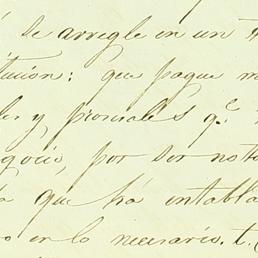 se arregle en un
tacion: que pague
les y prorrales q.e
egocio, por ser noto
que há entabla
o en lo necesario. t.